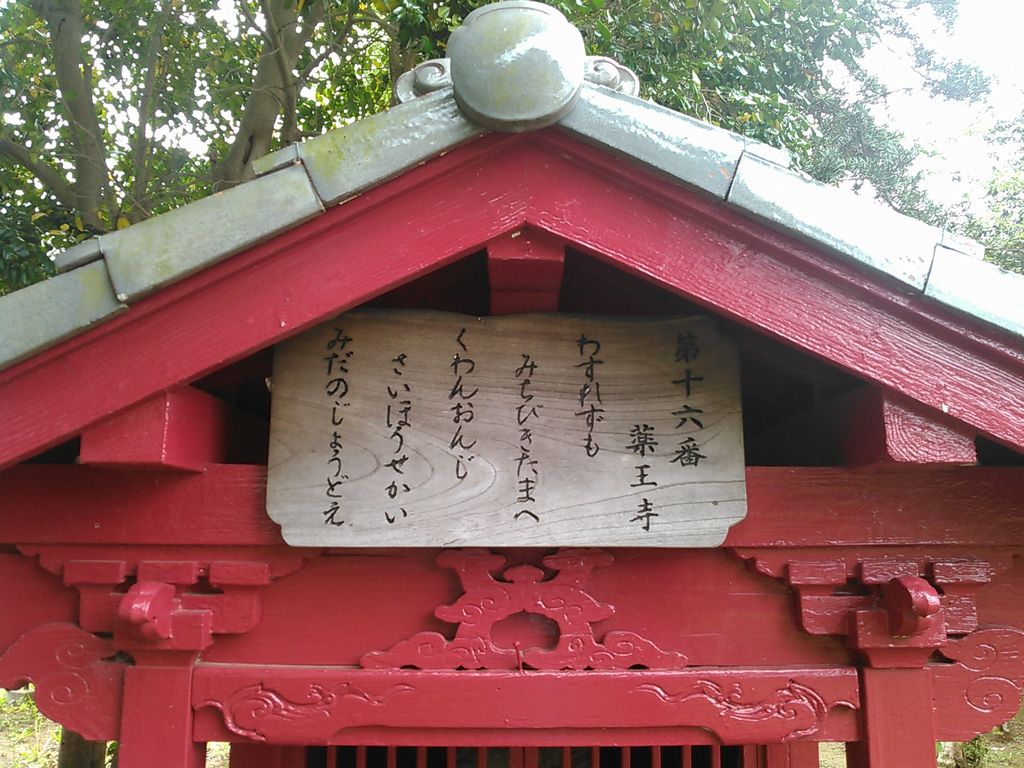 第十六番
薬王寺
わすれずも
みちびきたまへ
くわんおんじ
さいほうせかい
みだのじょうどえ